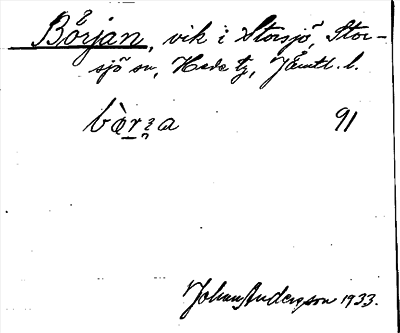 Början, vik i Storsjö, Stor-
sjö sn, Hede tg, Jämtl. l.
91
Johan Andersson 1933.